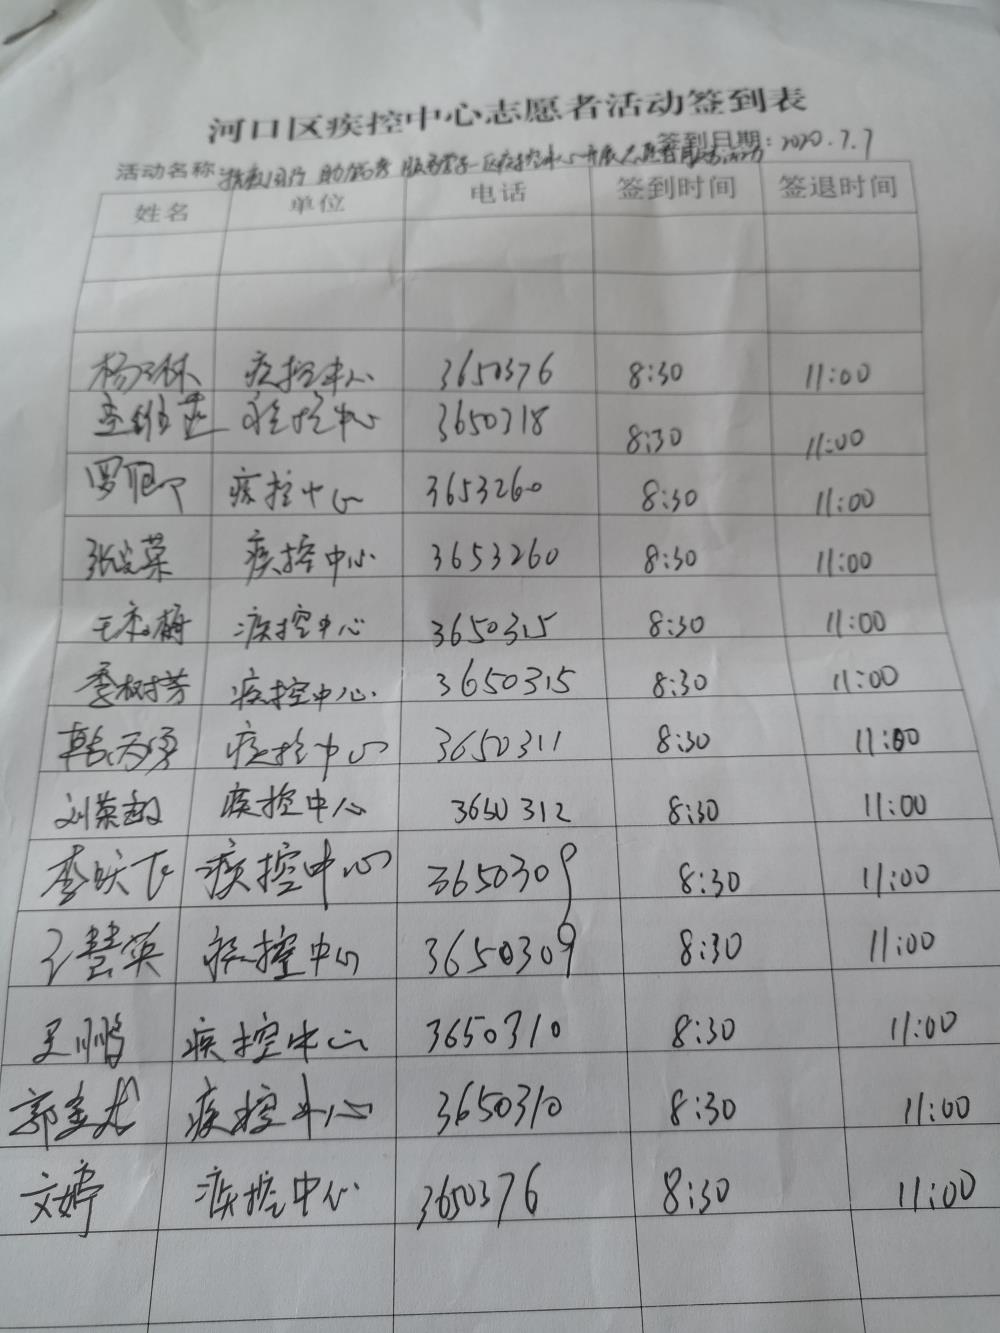 河口区疾控中心志愿者活动签到表
签到日期：2020.7.7
活动名称
姓名 单位 电话 签到时间 签退时间
疾控中心 3650376 8:30 11:00
疾控中心 3650318 8:30 11:00
疾控中心 3653260 8:30 11:00
疾控中心 3653260 8:30 11:00
王 梅 疾控中心 3650315 8:30 11:00
李树芳 疾控中心 3650315 8:30 11:00
疾控中心 3650311 8:30 11:00
刘荣 疾控中心 3650312 8:30 11:00
李 飞 疾控中心 3650309 8:30 11:00
王慧英 疾控中心 3650309 8:30 11:00
鹏 疾控中心 3650310 8:30 11:00
郭 龙 疾控中心 3650310 8:30 11:00
文婷 疾控中心 3650376 8:30 11:00